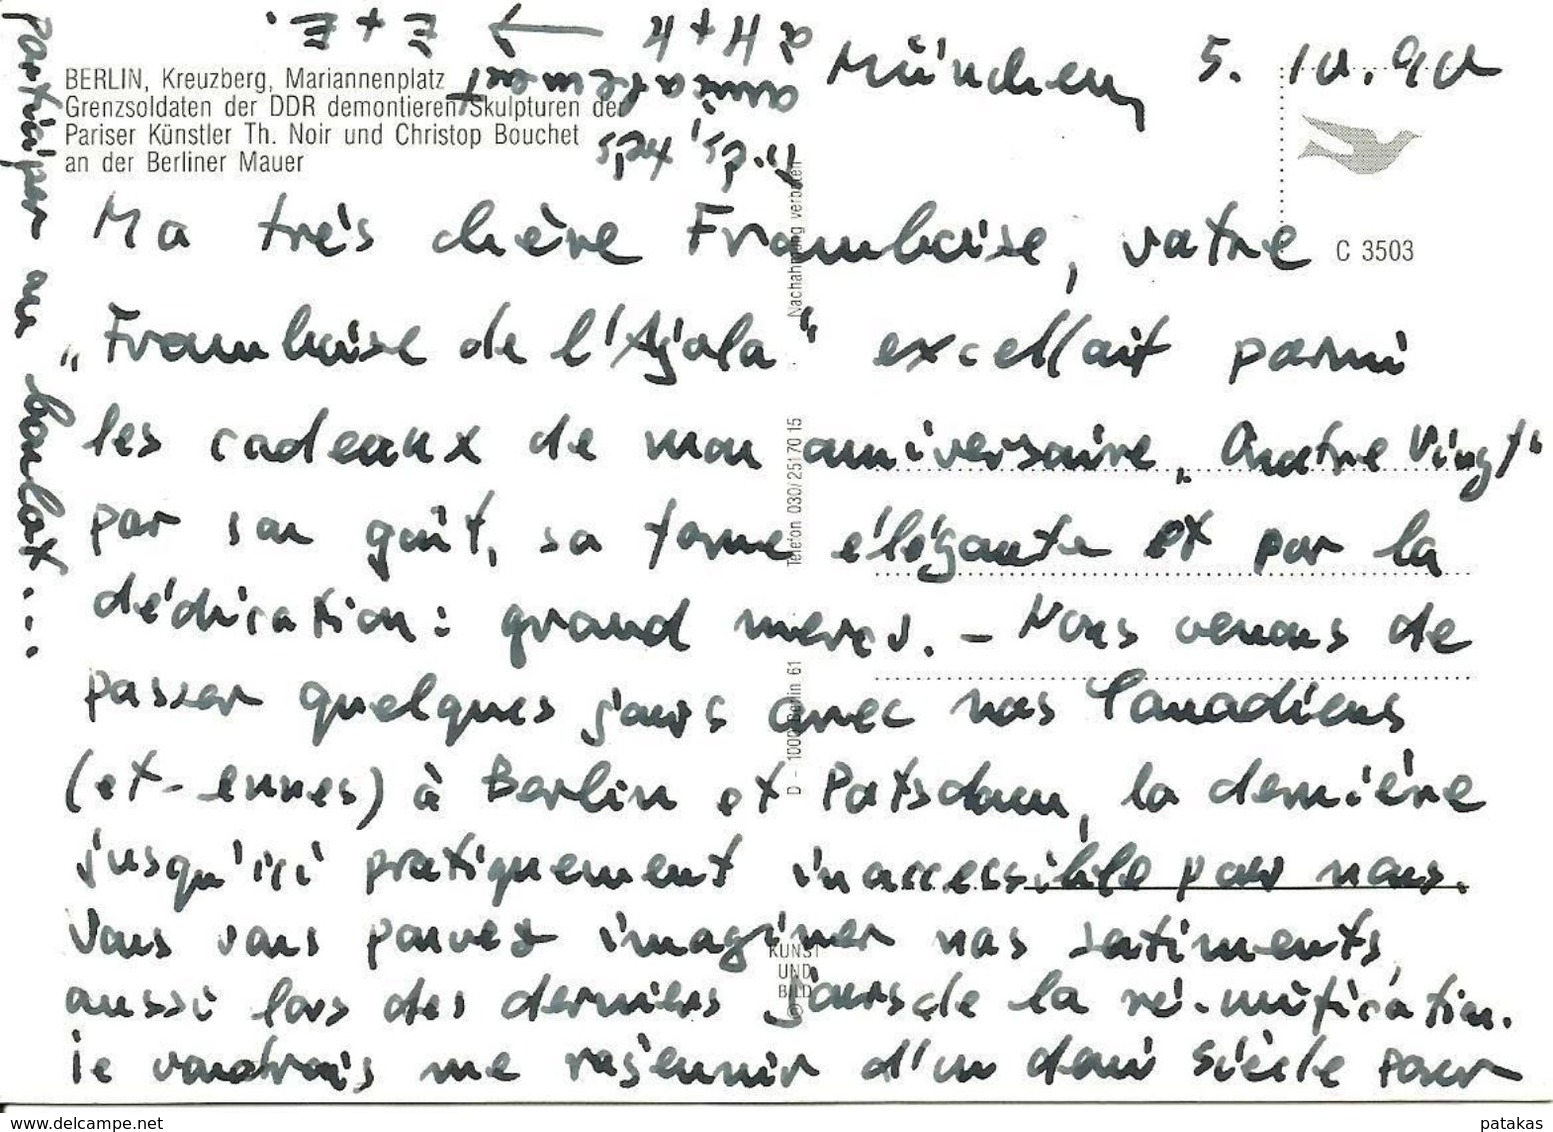 BERLIN, Kreuzberg, Mariannenplatz
Grenzsoldaten der DDR demontieren Skulpturen der
Pariser Künstler Th. Noir und Christop Bouchet
an der Berliner Mauer
München, 5. 10. 90
C 3503
Ma très chère Framboise, votre
„Framboise de l'Ajola" excellait parmi
les cadeaux de mon anniversaire „Quatre Vingt"
par son goût, sa forme élégante et par la
dédication: grand merci. – Nous venons de
passer quelques jours avec nos Canadiens
(et-ennes) à Berlin et Potsdam, la dernière
jusqu'ici pratiquement inaccessible pour nous.
Vous vous pouvez imaginer nos sentiments,
aussi lors des derniers jours de la ré-unification.
Je voudrais me rajeunir d'un demi siècle pour
participer au boulot...
amicalement
à H + K → E + E.
Nachahmung verboten
Telefon 030/251 70 15
D - 1000 Berlin 61
KUNST
UND
BILD
www.delcampe.net
patakas